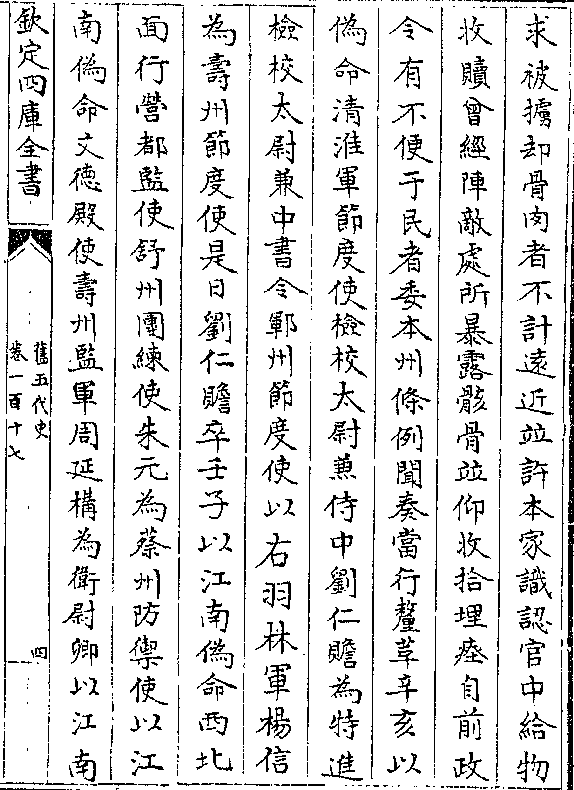 求被擄却骨肉者不計遠近並許本家識認官中給物
收贖曾經陣敵處所暴露骸骨並仰收拾埋瘞自前政
令有不便于民者委本州條例聞奏當行釐革辛亥以
偽命清淮軍節度使檢校太尉兼侍中劉仁贍為特進
檢校太尉兼中書令鄆州節度使以右羽林軍楊信
為壽州節度使是日劉仁贍卒壬子以江南偽命西北
面行營都監使舒州團練使朱元為蔡州防禦使以江
南偽命文德殿使壽州監軍周延構為衛尉卿以江南
欽定四庫全書
舊五代史
卷一百十七
四